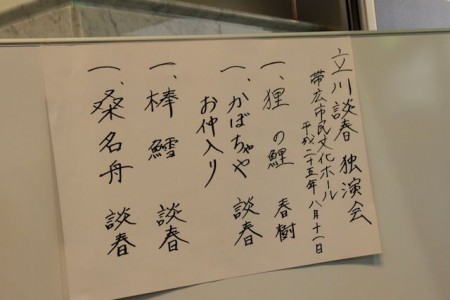 立川談春 独演会
帯広市民文化ホール
平成二十五年 八月十一日
一、狸の鯉 春樹
一、かぼちゃや 談春
お仲入り
一、棒鱈 談春
一、桑名舟 談春